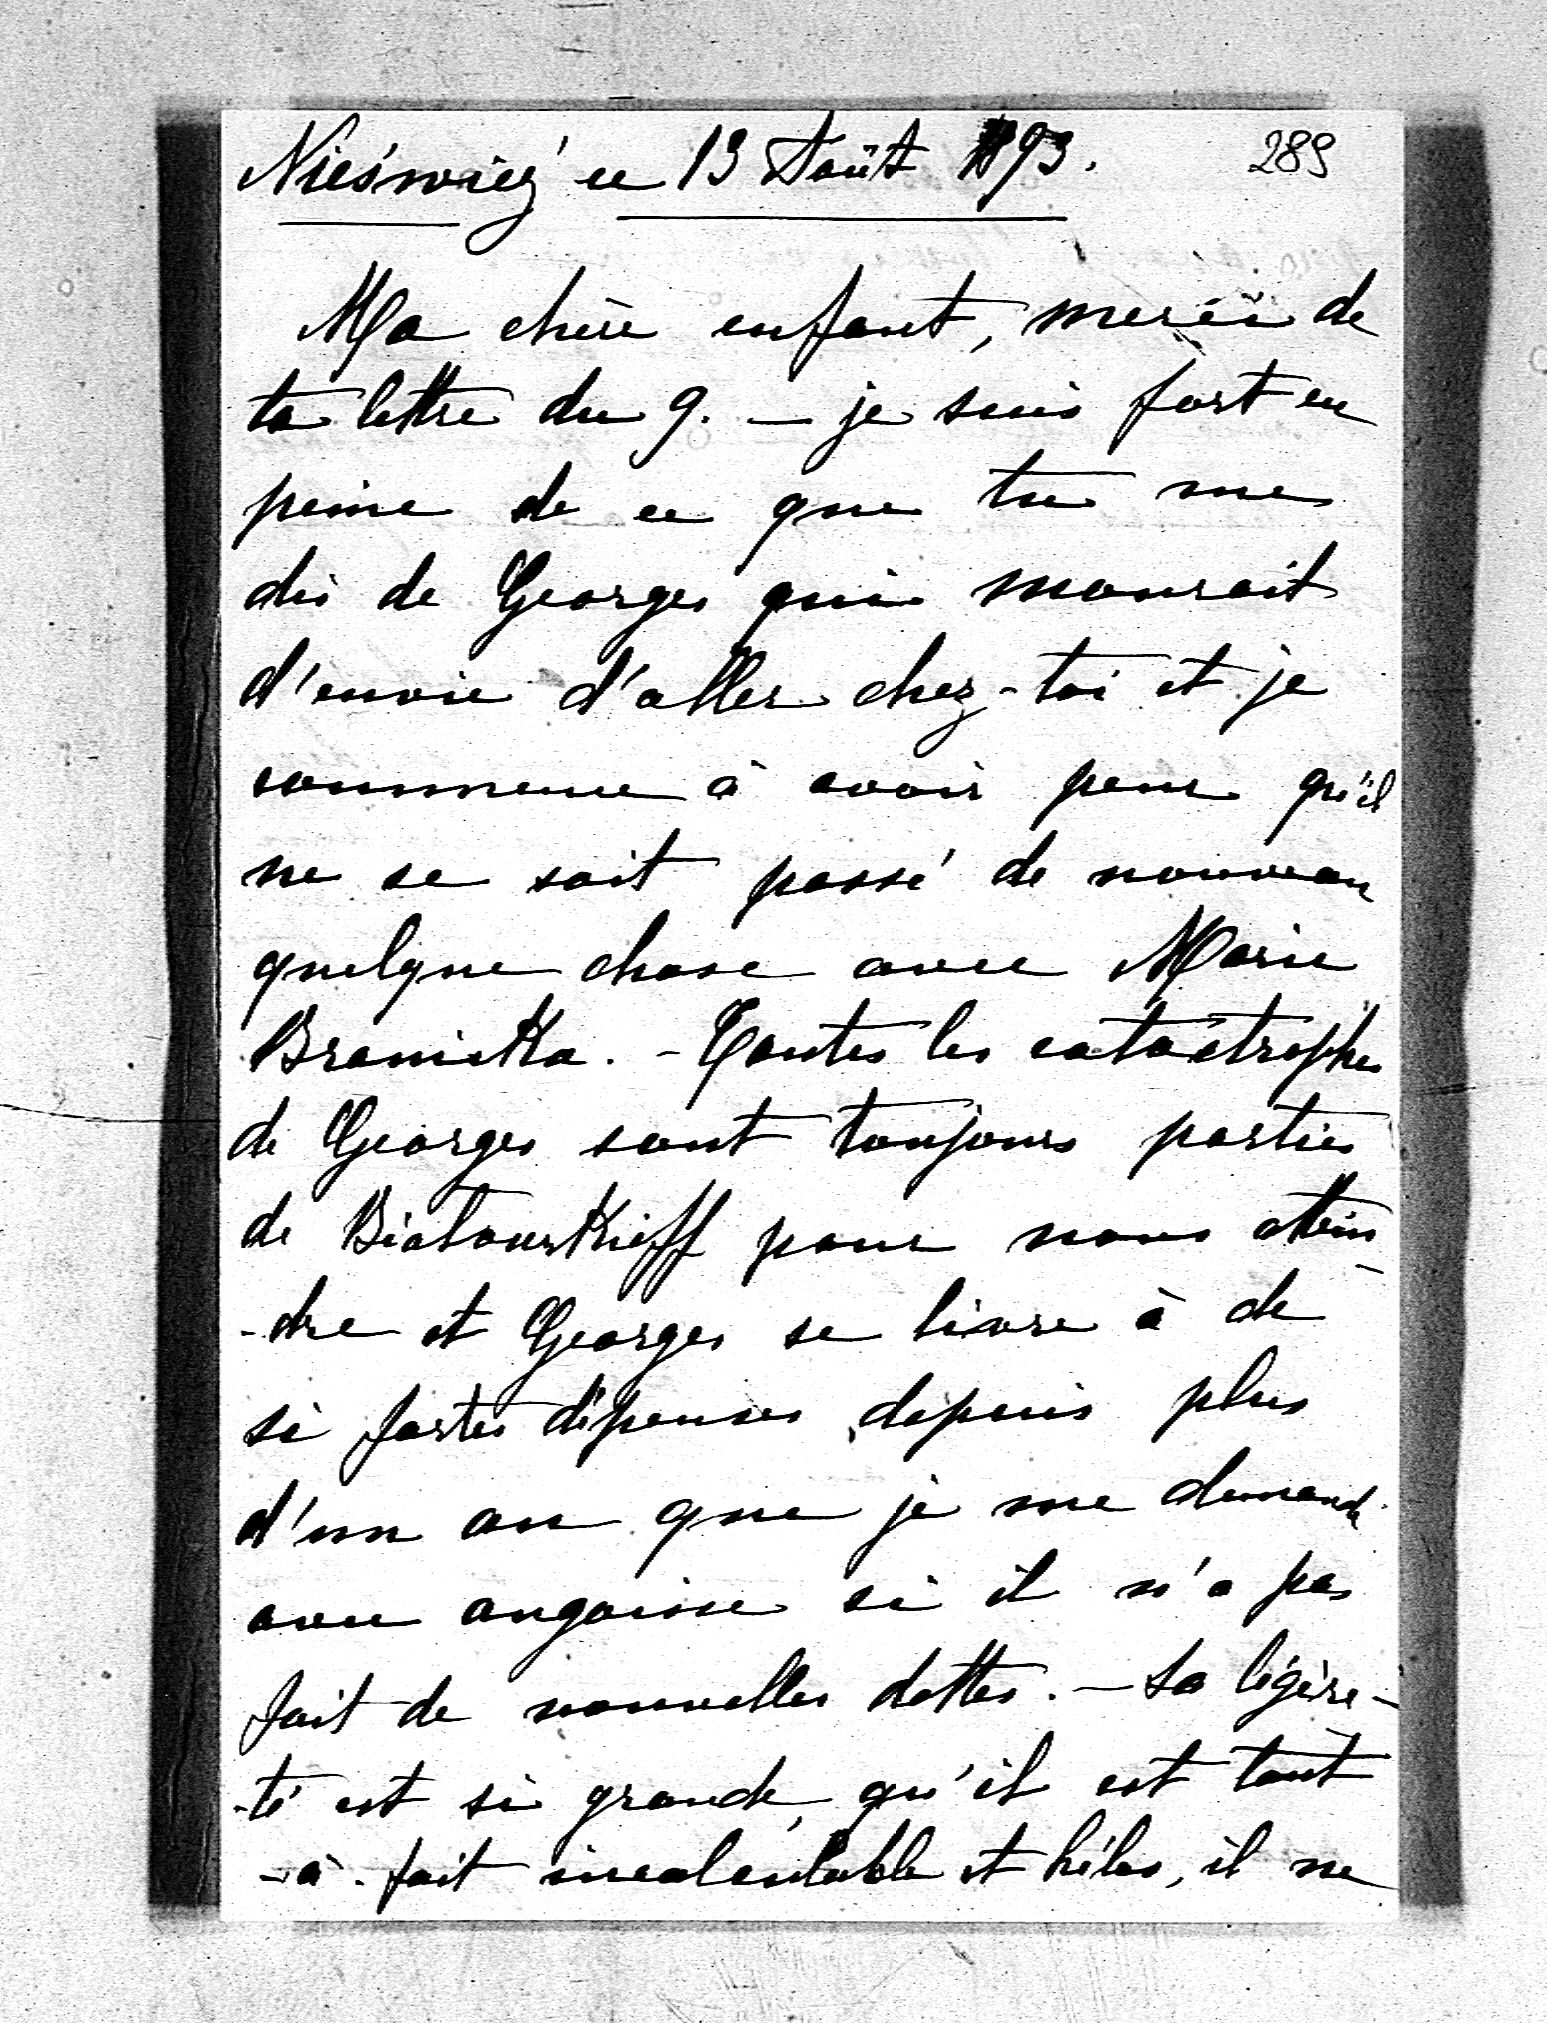 Nieświéź ce 13 Août 1893. 289
Ma chère enfant, merci de
ta lettre du 9. — je suis fort en
peine de ce que tu me
dis de Georges qui mourait
d'envie d'aller chez-toi et je
commence à avoir peur qu'il
ne se soit passé de nouveau
quelque chose avec Marie
Branicka. - Toutes les catastrophes
de Georges sont toujours parties
de Biatourkieff pour nous attein
-dre et Georges se livre à de
si fortes dépenses depuis plus
d'un an que je me demande
avec angoisse si il n'a pas
fait de nouvelles dettes. — Sa légère-
-té est si grande, qu'il est tout
-à-fait incalculable et hélas, il ne